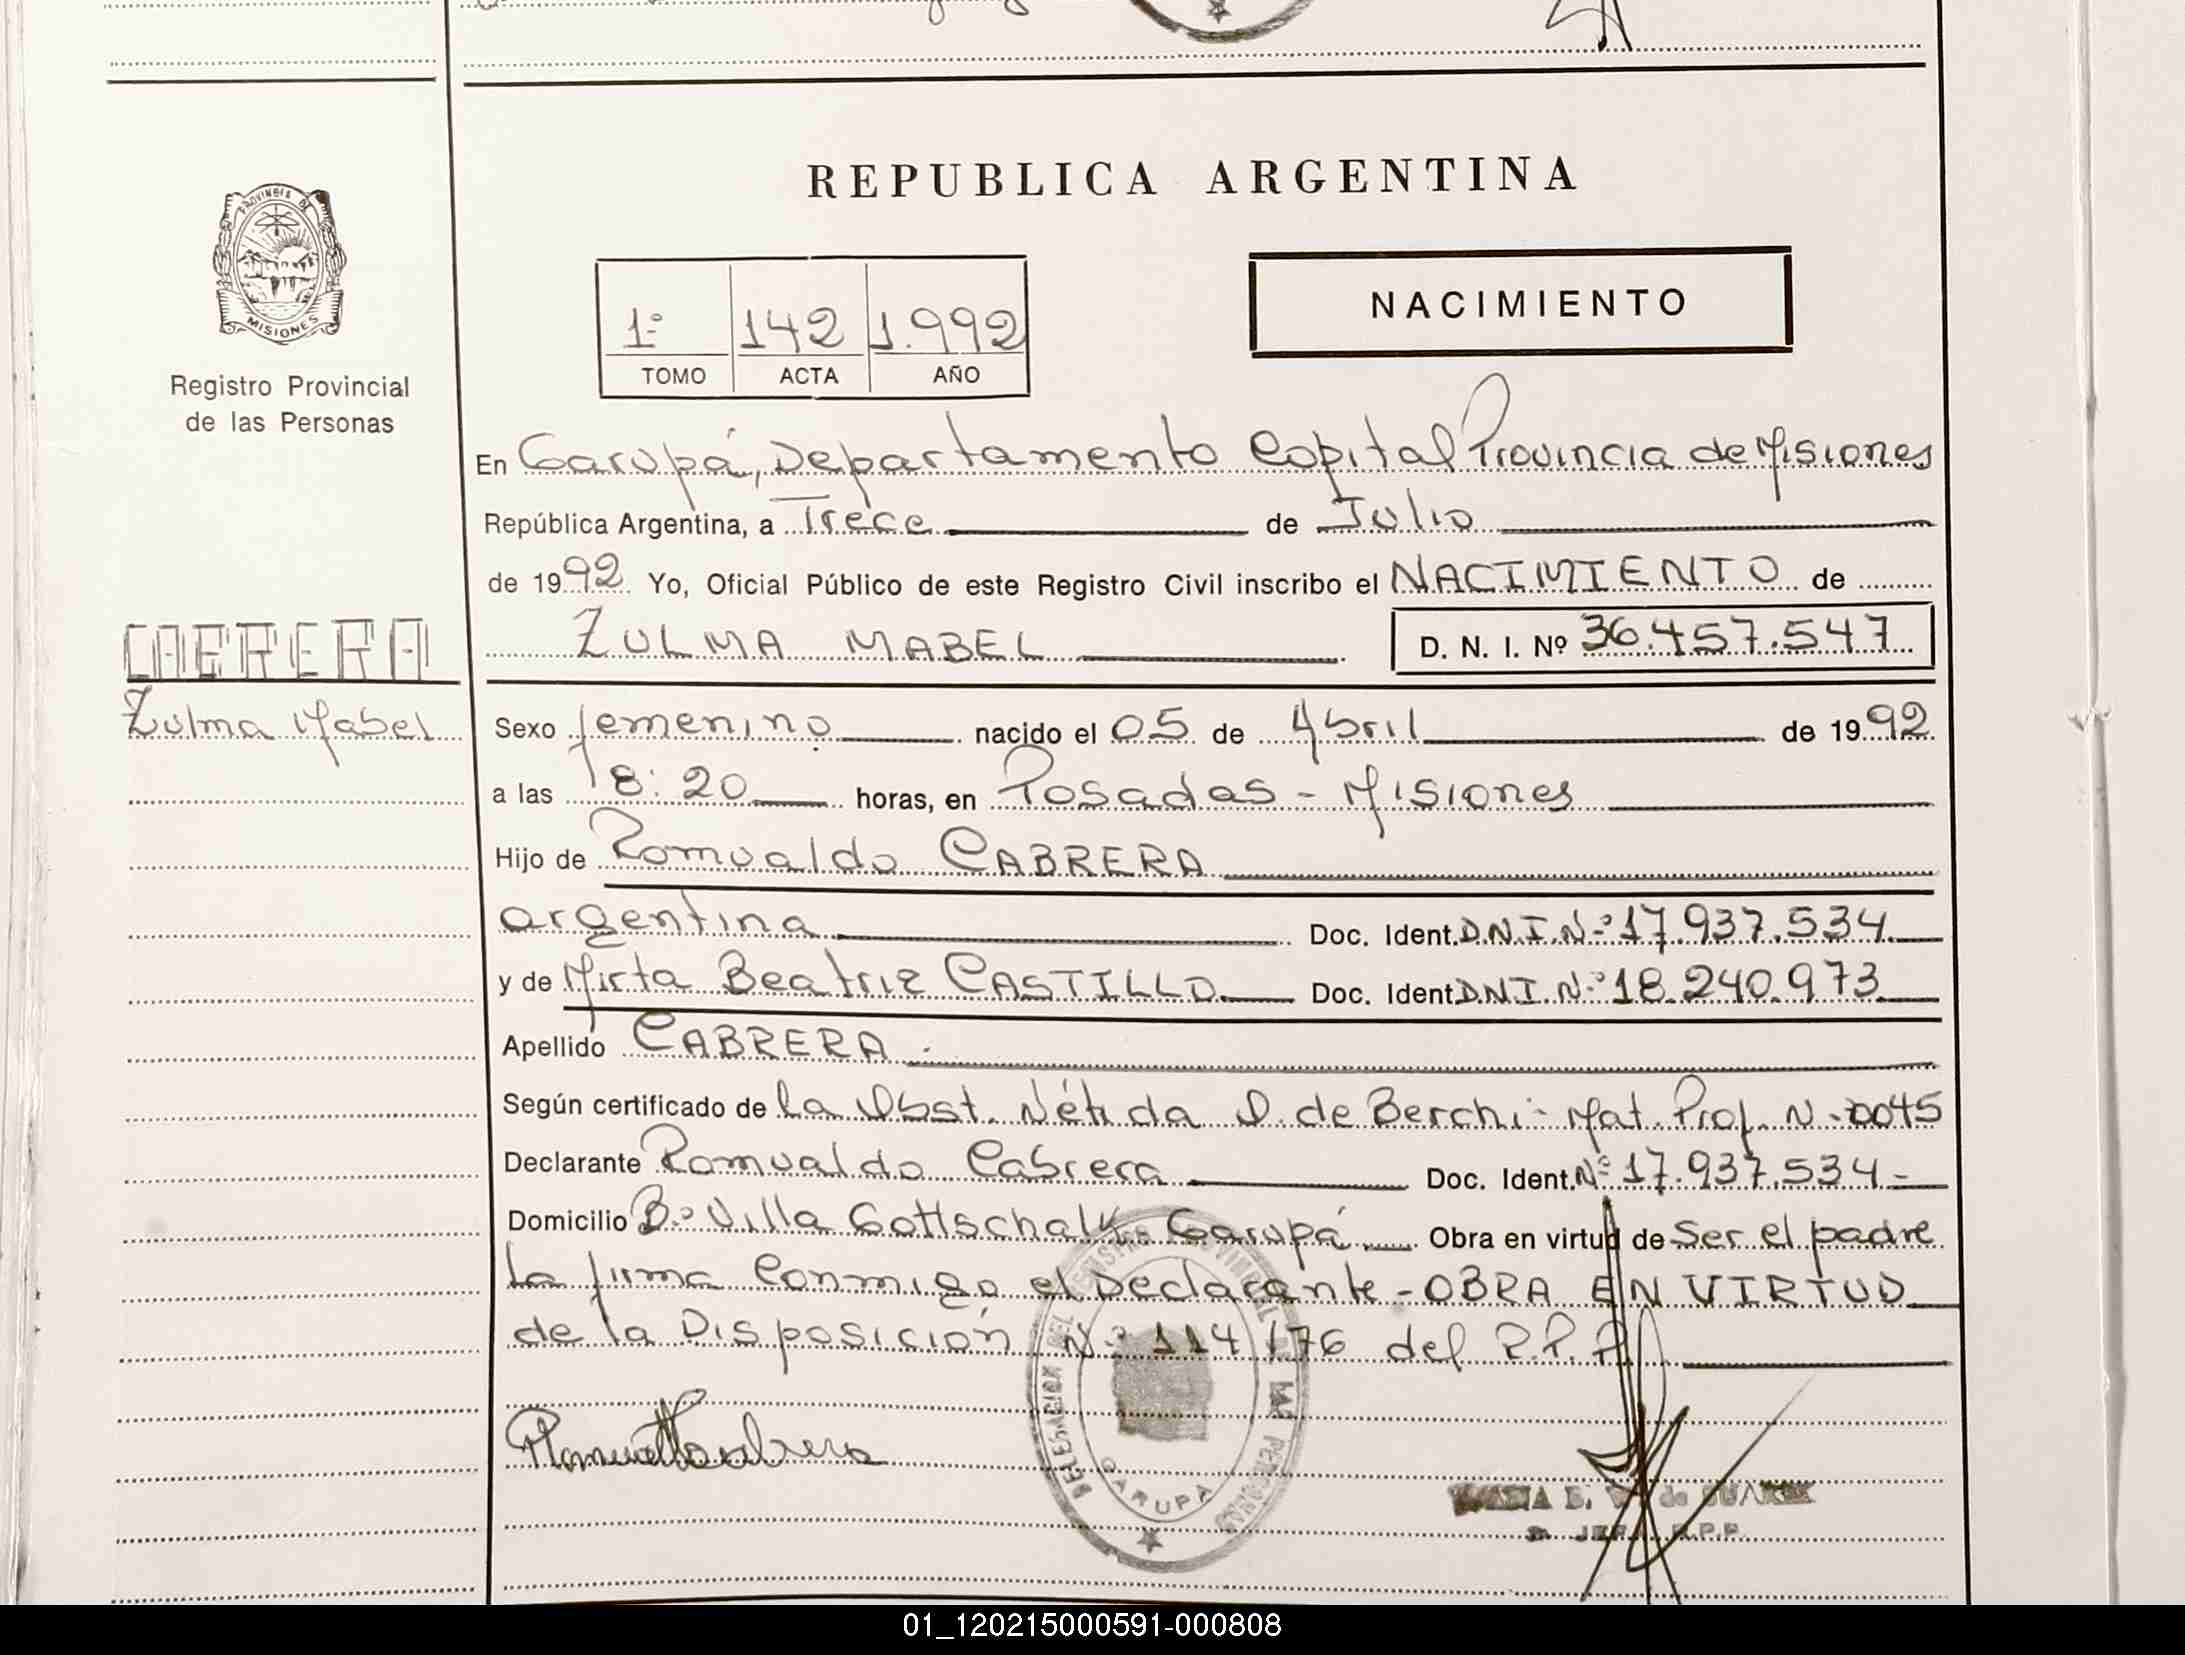 REPUBLICA ARGENTINA
PROVINCIA DE
MISIONES
Registro Provincial
de las Personas
1º 142 1.992
TOMO ACTA AÑO
NACIMIENTO
En Garupá, Departamento Capital Provincia de Misiones
República Argentina, a Trece de Julio
de 1992 Yo, Oficial Público de este Registro Civil inscribo el NACIMIENTO de
ZULMA MABEL D. N. I. Nº 36.457.547
CABRERA
Zulma Mabel
Sexo femenino nacido el 05 de Abril de 1992
a las 18:20 horas, en Posadas - Misiones
Hijo de Romualdo CABRERA
argentina Doc. Ident. D.N.I.Nº 17.937.534
y de Mirta Beatriz CASTILLO Doc. Ident. DNI.Nº 18.240.973
Apellido CABRERA.
Según certificado de la Obst. Nélida O. de Berchi - Mat. Prof. N-0045
Declarante Romualdo Cabrera Doc. Ident. Nº 17.937.534-
Domicilio Bº Villa Gottschalk Garupá Obra en virtud de ser el padre
la firma conmigo el Declarante - OBRA EN VIRTUD
de la Disposición Nº 114/76 del R.P.P.
DELEGACION DEL REGISTRO PROVINCIAL DE LAS PERSONAS
GARUPA
de SUAREZ
JEFA R.P.P.
01_120215000591-000808